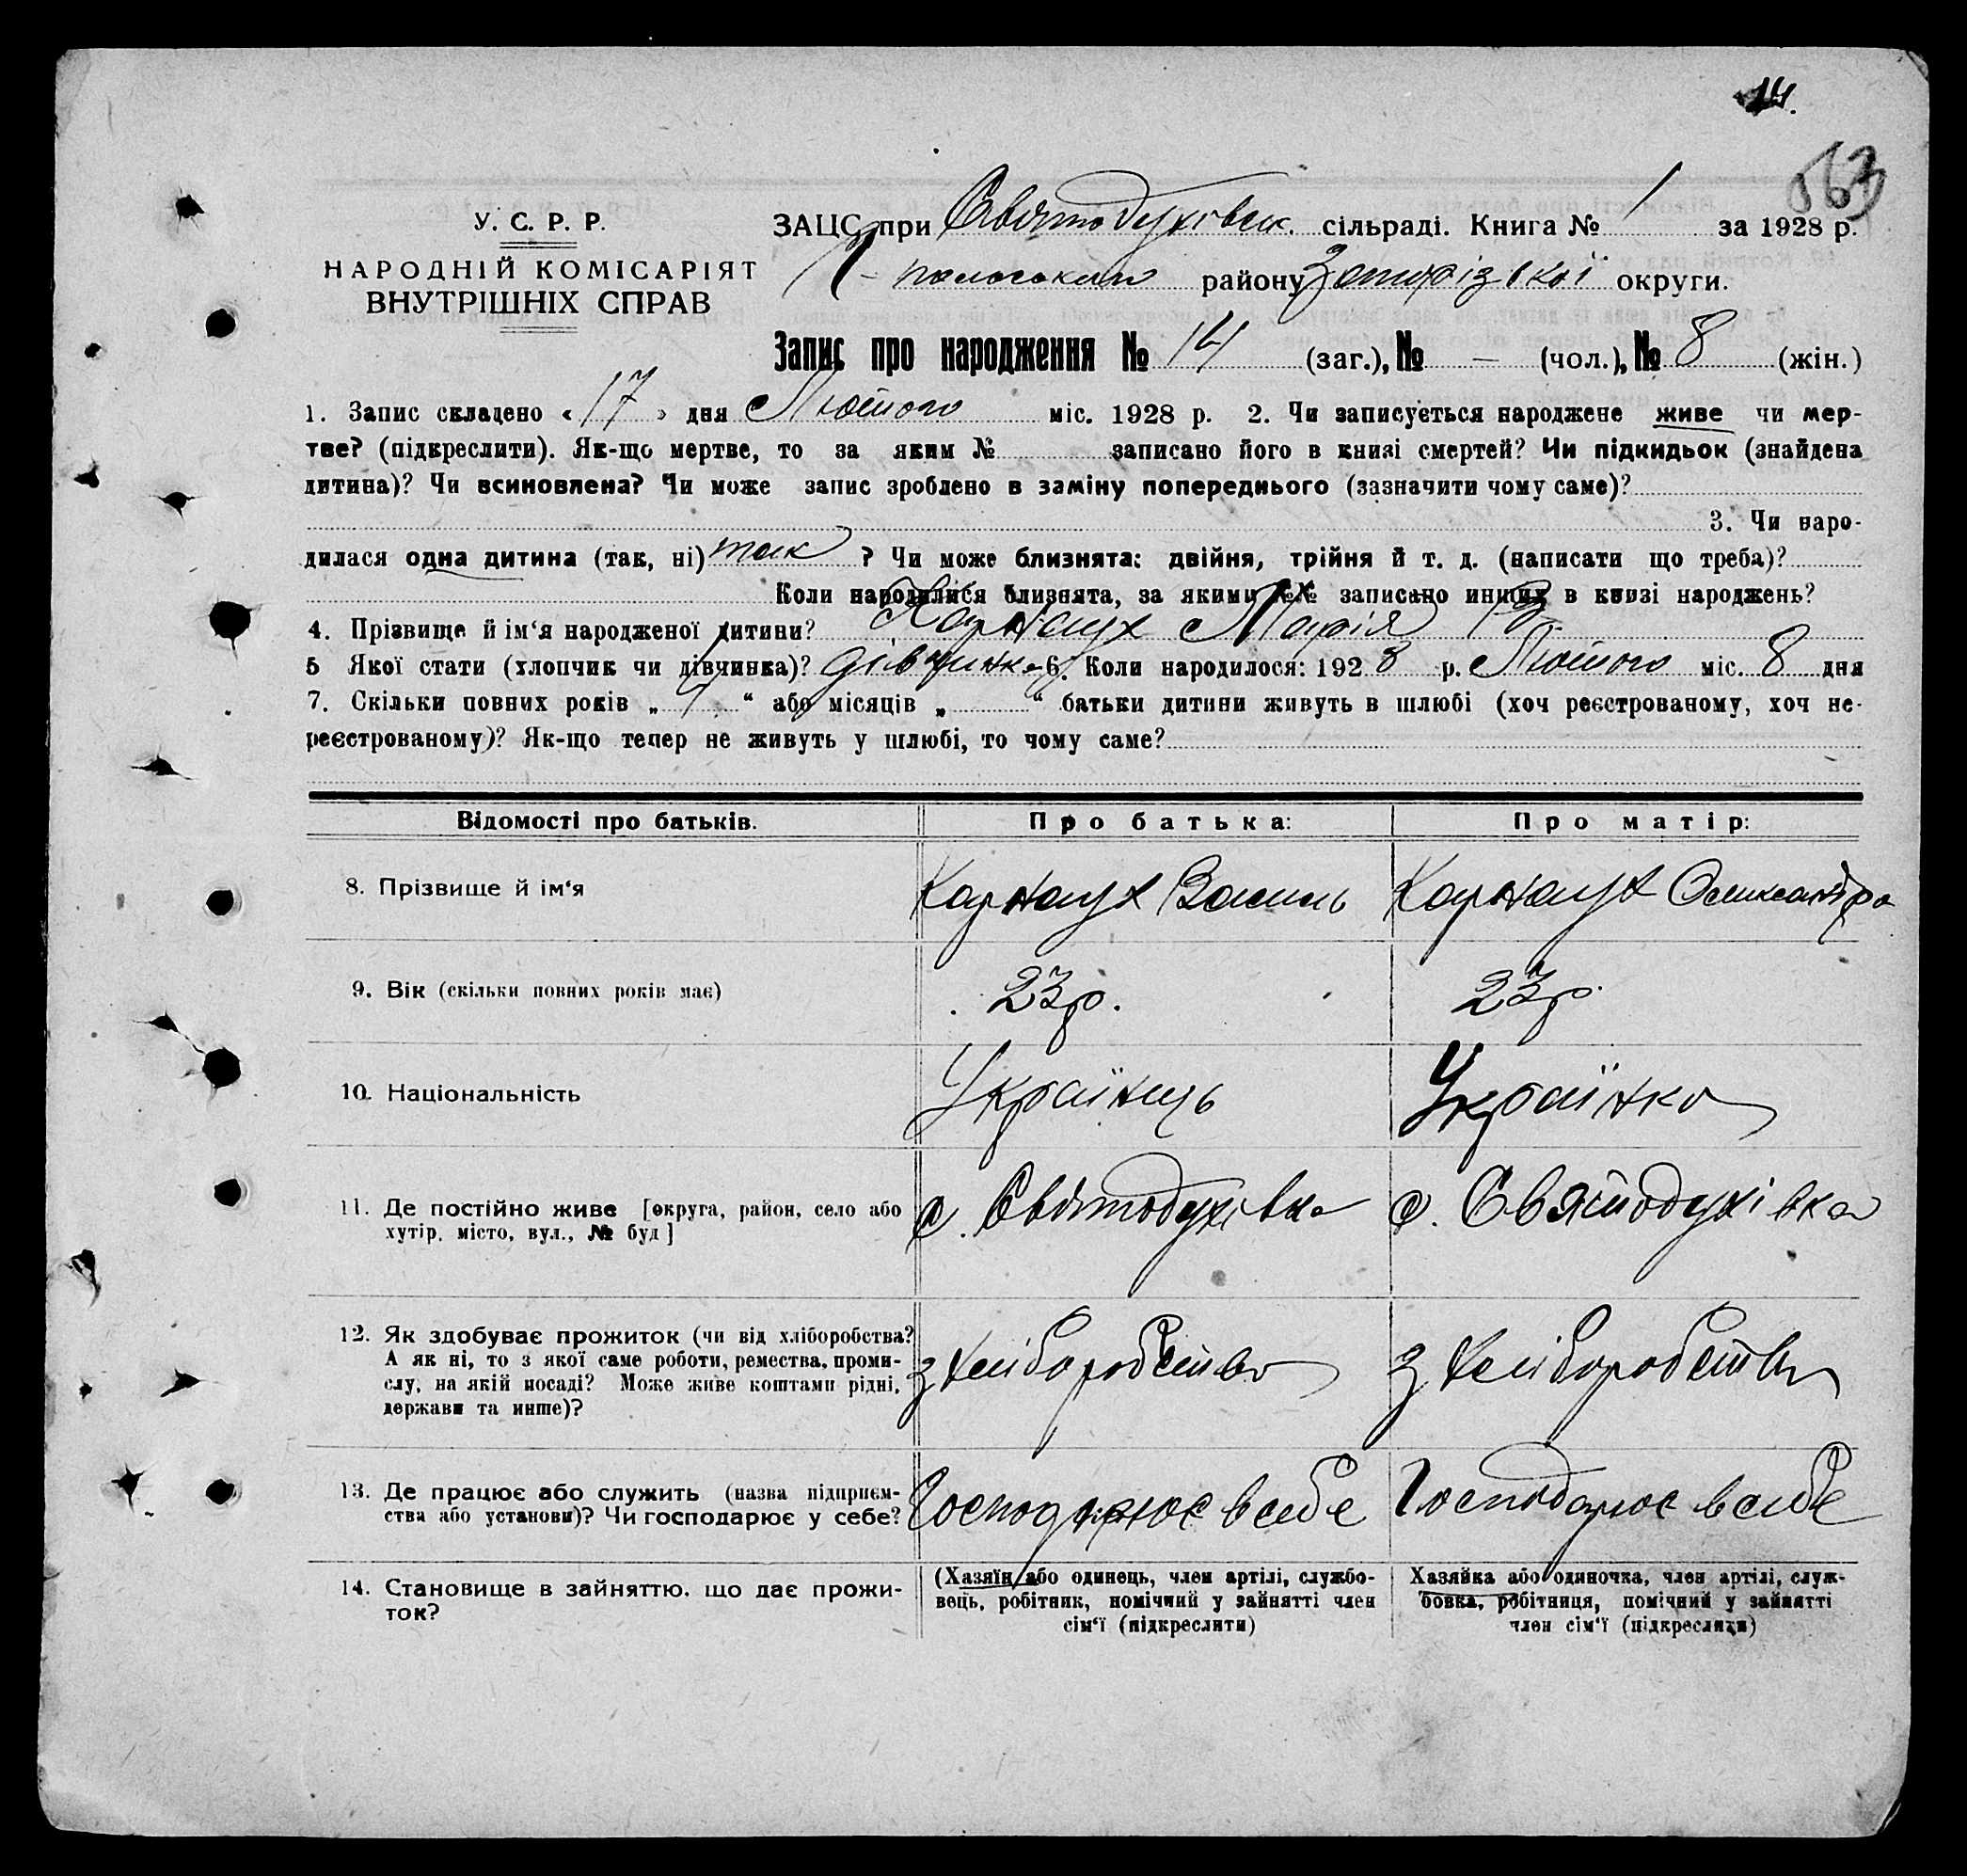 14.
563
У. С. Р. Р.
НАРОДНІЙ КОМІСАРІЯТ
ВНУТРІШНІХ СПРАВ
ЗАЦС при Святодухівськ. сільраді. Книга № 1 за 1928 р.
району Запорізької округи.
Запис про народження № 14 (заг.), № — (чол.), № 8 (жін.)
1. Запис складено « 17 » дня Лютого міс. 1928 р. 2. Чи записується народжене живе чи мер-
тве? (підкреслити). Як-що мертве, то за яким № записано його в книзі смертей? Чи підкидьок (знайдена
дитина)? Чи всиновлена? Чи може запис зроблено в заміну попереднього (зазначити чому саме)?
3. Чи наро-
дилася одна дитина (так, ні) так ? Чи може близнята: двійня, трійня й т. д. (написати що треба)?
Коли народилися близнята, за якими №№ записано инших в книзі народжень?
4. Прізвище й ім‘я народженої дитини? Карнаух Марія В
5 Якої стати (хлопчик чи дівчинка)? дівчинка 6. Коли народилося: 1928 р. Лютого міс. 8 дня
7. Скільки повних років „ 4 “ або місяців „ “ батьки дитини живуть в шлюбі (хоч реєстрованому, хоч не-
реєстрованому)? Як-що тепер не живуть у шлюбі, то чому саме?
Відомості про батьків. Про батька: Про матір:
8. Прізвище й ім‘я Карнаух Василь Карнаух Олександра
9. Вік (скільки повних років має) 23 р. 23 р.
10. Національність Українць Українка
11. Де постійно живе [округа, район, село або
хутір, місто, вул., № буд] с. Святодухівка с. Святодухівка
12. Як здобуває прожиток (чи від хліборобства?
А як ні, то з якої саме роботи, ремества, проми-
слу, на якій посаді? Може живе коштами рідні,
держави та инше)? з хліборобства з хліборобства
13. Де працює або служить (назва підприєм-
ства або установи)? Чи господарює у себе? Господарює в себе Господарює в себе
14. Становище в зайняттю, що дає прожи-
ток?
(Хазяїн або одинець, член артілі, службо-
вець, робітник, помічний у зайнятті член
сім‘ї (підкреслити)
Хазяйка або одиночка, член артілі, служ-
бовка, робітниця, помічний у зайнятті
член сім‘ї (підкреслити)